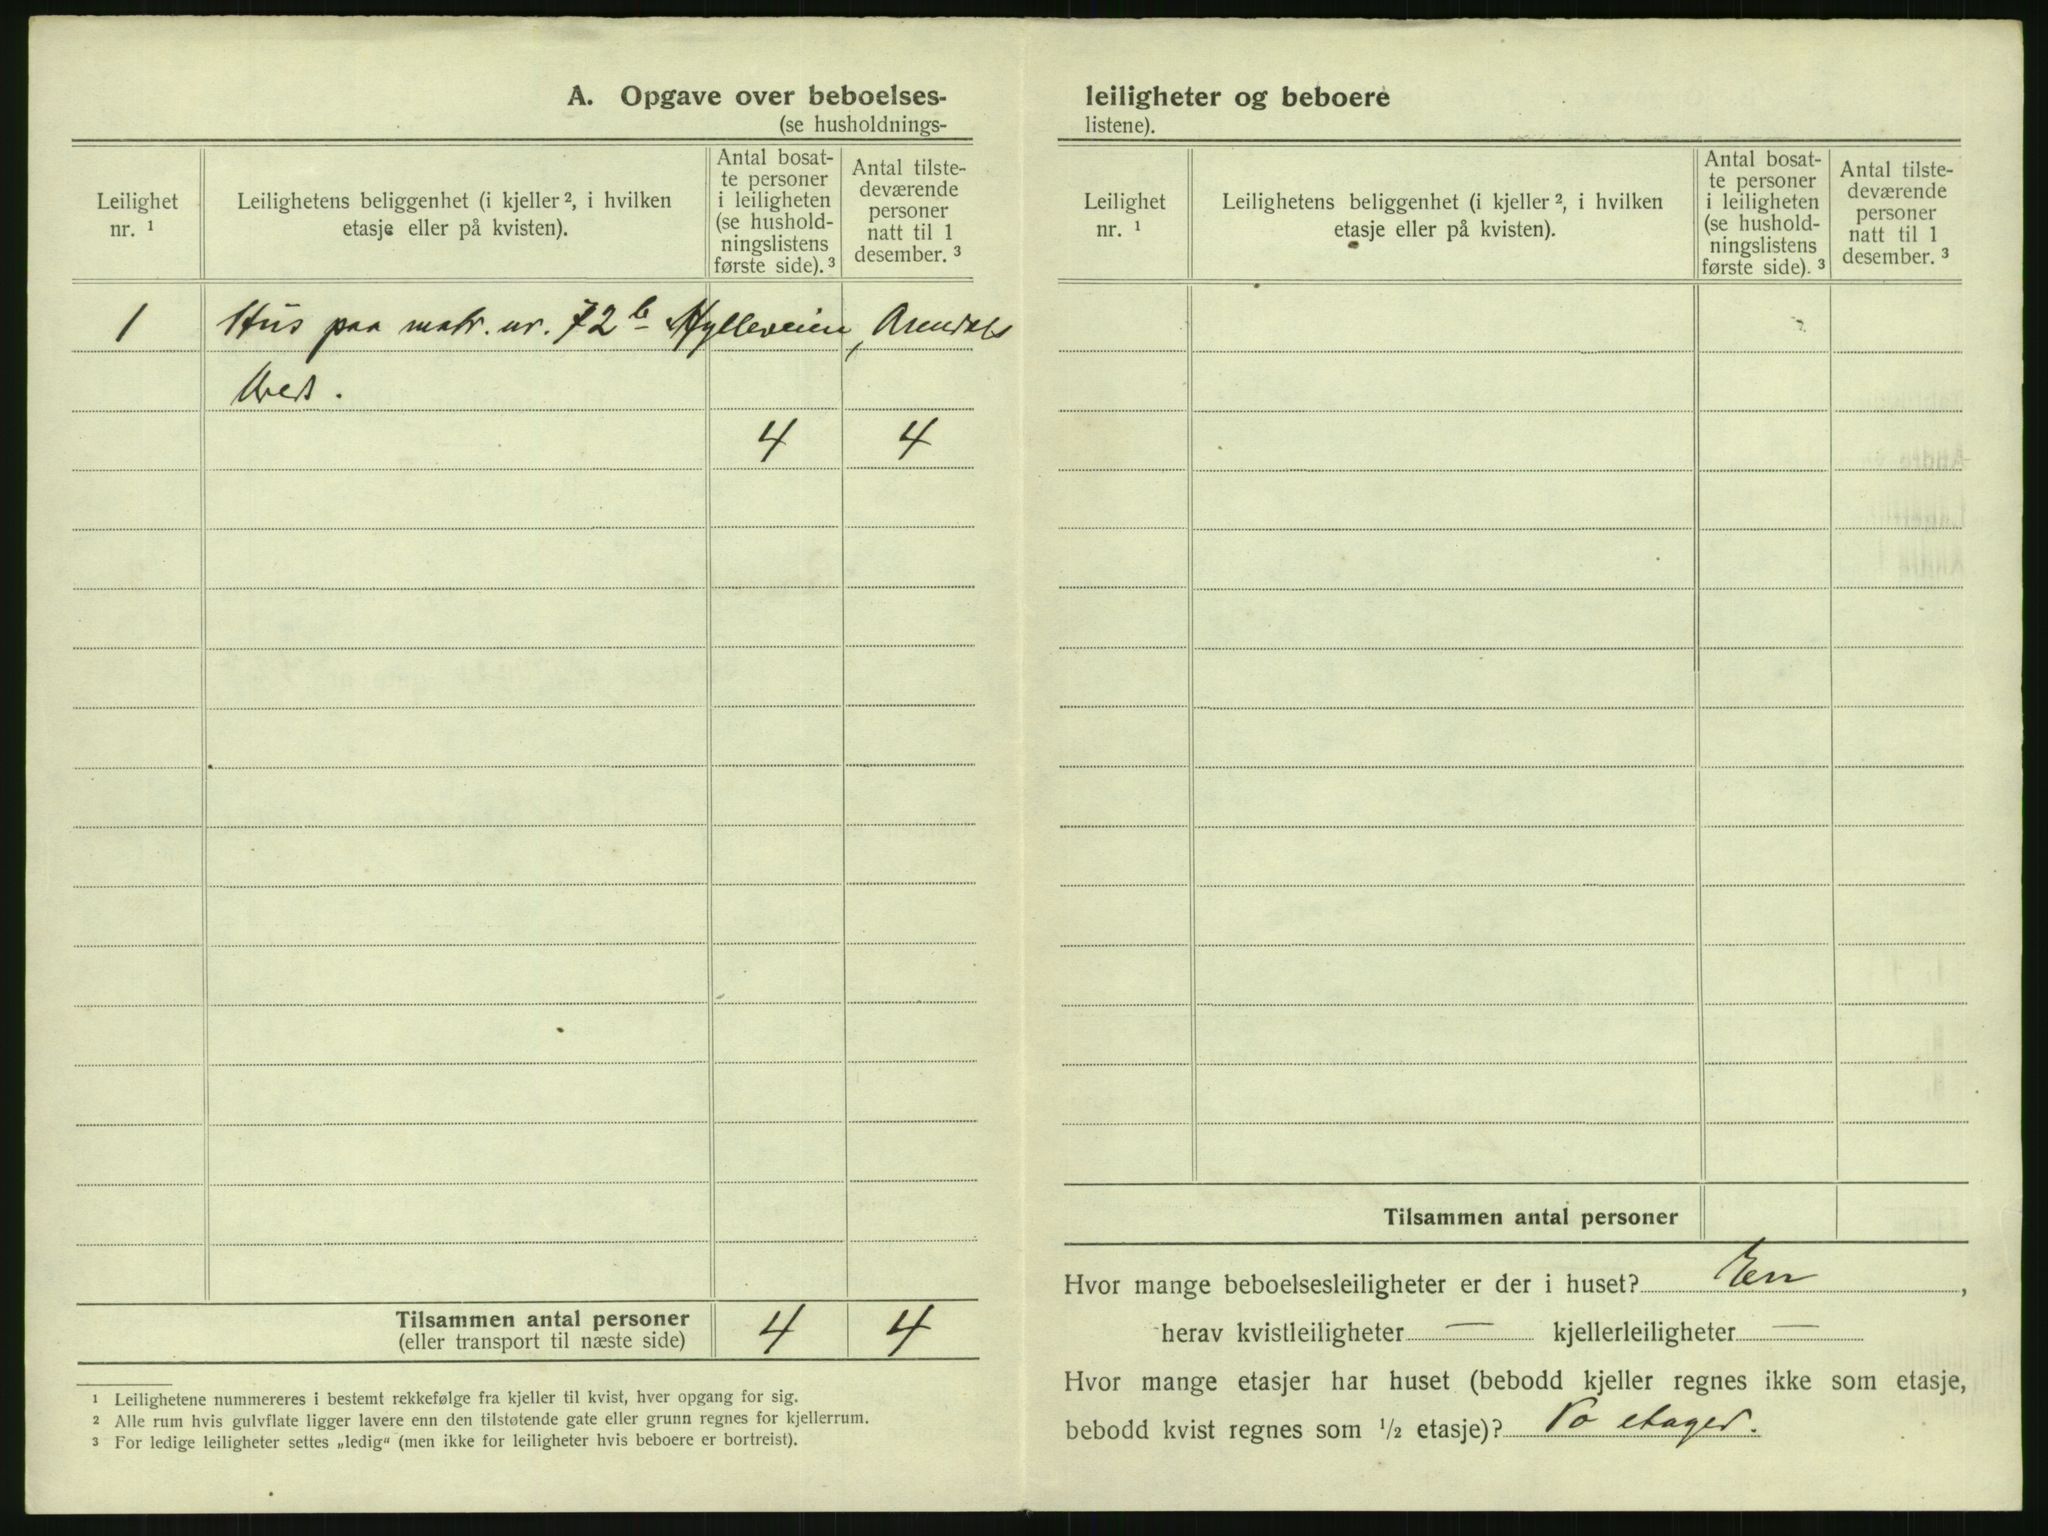 A. Opgave over beboelses-
(se husholdnings-
Leilighet nr. ¹
Leilighetens beliggenhet (i kjeller ², i hvilken etasje eller på kvisten).
Antal bosat-
te personer
i leiligheten
(se hushold-
ningslistens
første side). ³
Antal tilste-
deværende
personer
natt til 1
desember. ³
1 Hus paa matr. nr. 72 b Hylleveien, Arendals
4 4
Tilsammen antal personer 4 4
(eller transport til næste side)
¹ Leilighetene nummereres i bestemt rekkefølge fra kjeller til kvist, hver opgang for sig.
² Alle rum hvis gulvflate ligger lavere enn den tilstøtende gate eller grunn regnes for kjellerrum.
³ For ledige leiligheter settes „ledig“ (men ikke for leiligheter hvis beboere er bortreist).
leiligheter og beboere
listene).
Leilighet nr. ¹
Leilighetens beliggenhet (i kjeller ², i hvilken etasje eller på kvisten).
Antal bosat-
te personer
i leiligheten
(se hushold-
ningslistens
første side). ³
Antal tilste-
deværende
personer
natt til 1
desember. ³
Tilsammen antal personer
Hvor mange beboelsesleiligheter er der i huset? En ,
herav kvistleiligheter — kjellerleiligheter —
Hvor mange etasjer har huset (bebodd kjeller regnes ikke som etasje,
bebodd kvist regnes som ½ etasje)? To etager.